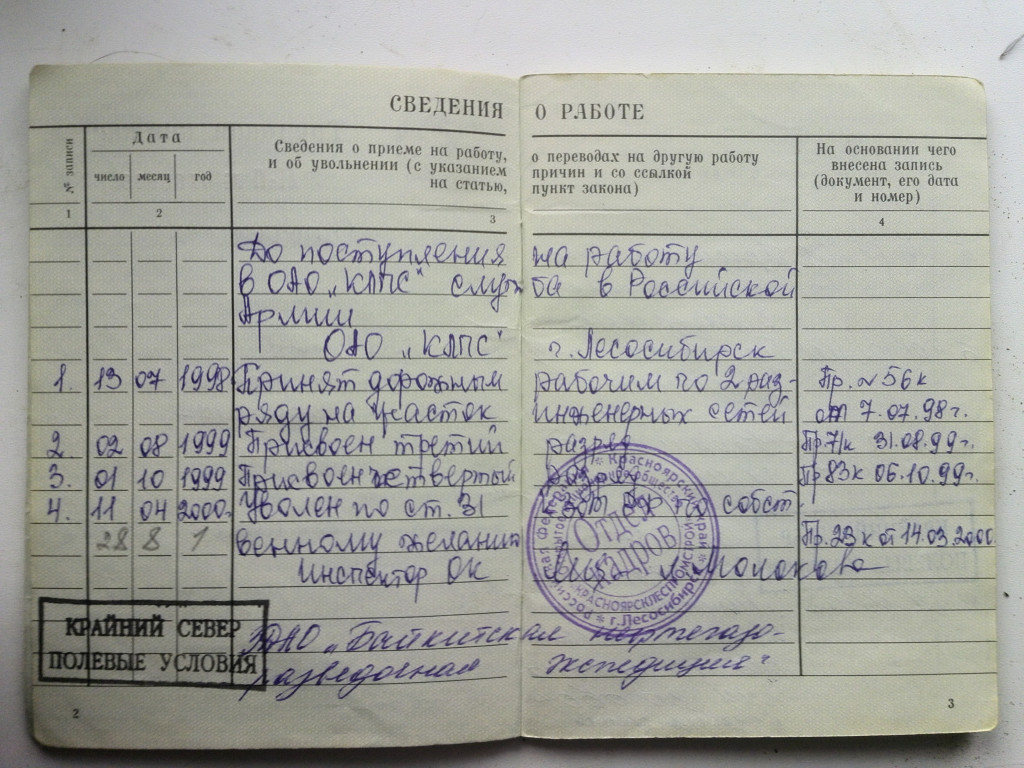 СВЕДЕНИЯ О РАБОТЕ
№ записи
Дата
число месяц год
Сведения о приеме на работу, и об увольнении (с указанием на статью,
о переводах на другую работу причин и со ссылкой пункт закона)
На основании чего внесена запись (документ, его дата и номер)
1 2 3 4
До поступления на работу
в ОАО „КЛПС" служба в Российской
Армии
ОАО „КЛПС" г. Лесосибирск
1. 13 07 1998 Принят дорожным рабочим по 2 раз- Пр. № 56 к
ряду на участок инженерных сетей от 7.07.98 г.
2. 02 08 1999 Присвоен третий разряд Пр 71к 31.08.99 г.
3. 01 10 1999 Присвоен четвертый разряд Пр 83к 06.10.99 г.
4. 11 04 2000г Уволен по ст. 31 КЗОТ РФ по собст
28 8 1 венному желанию Пр. 23 к от 14.03.2000
Инспектор ОК
Отдел кадров
г. Лесосибирск
КРАЙНИЙ СЕВЕР
ПОЛЕВЫЕ УСЛОВИЯ
„Байкитская нефтегазо-
разведочная экспедиция"
2 3